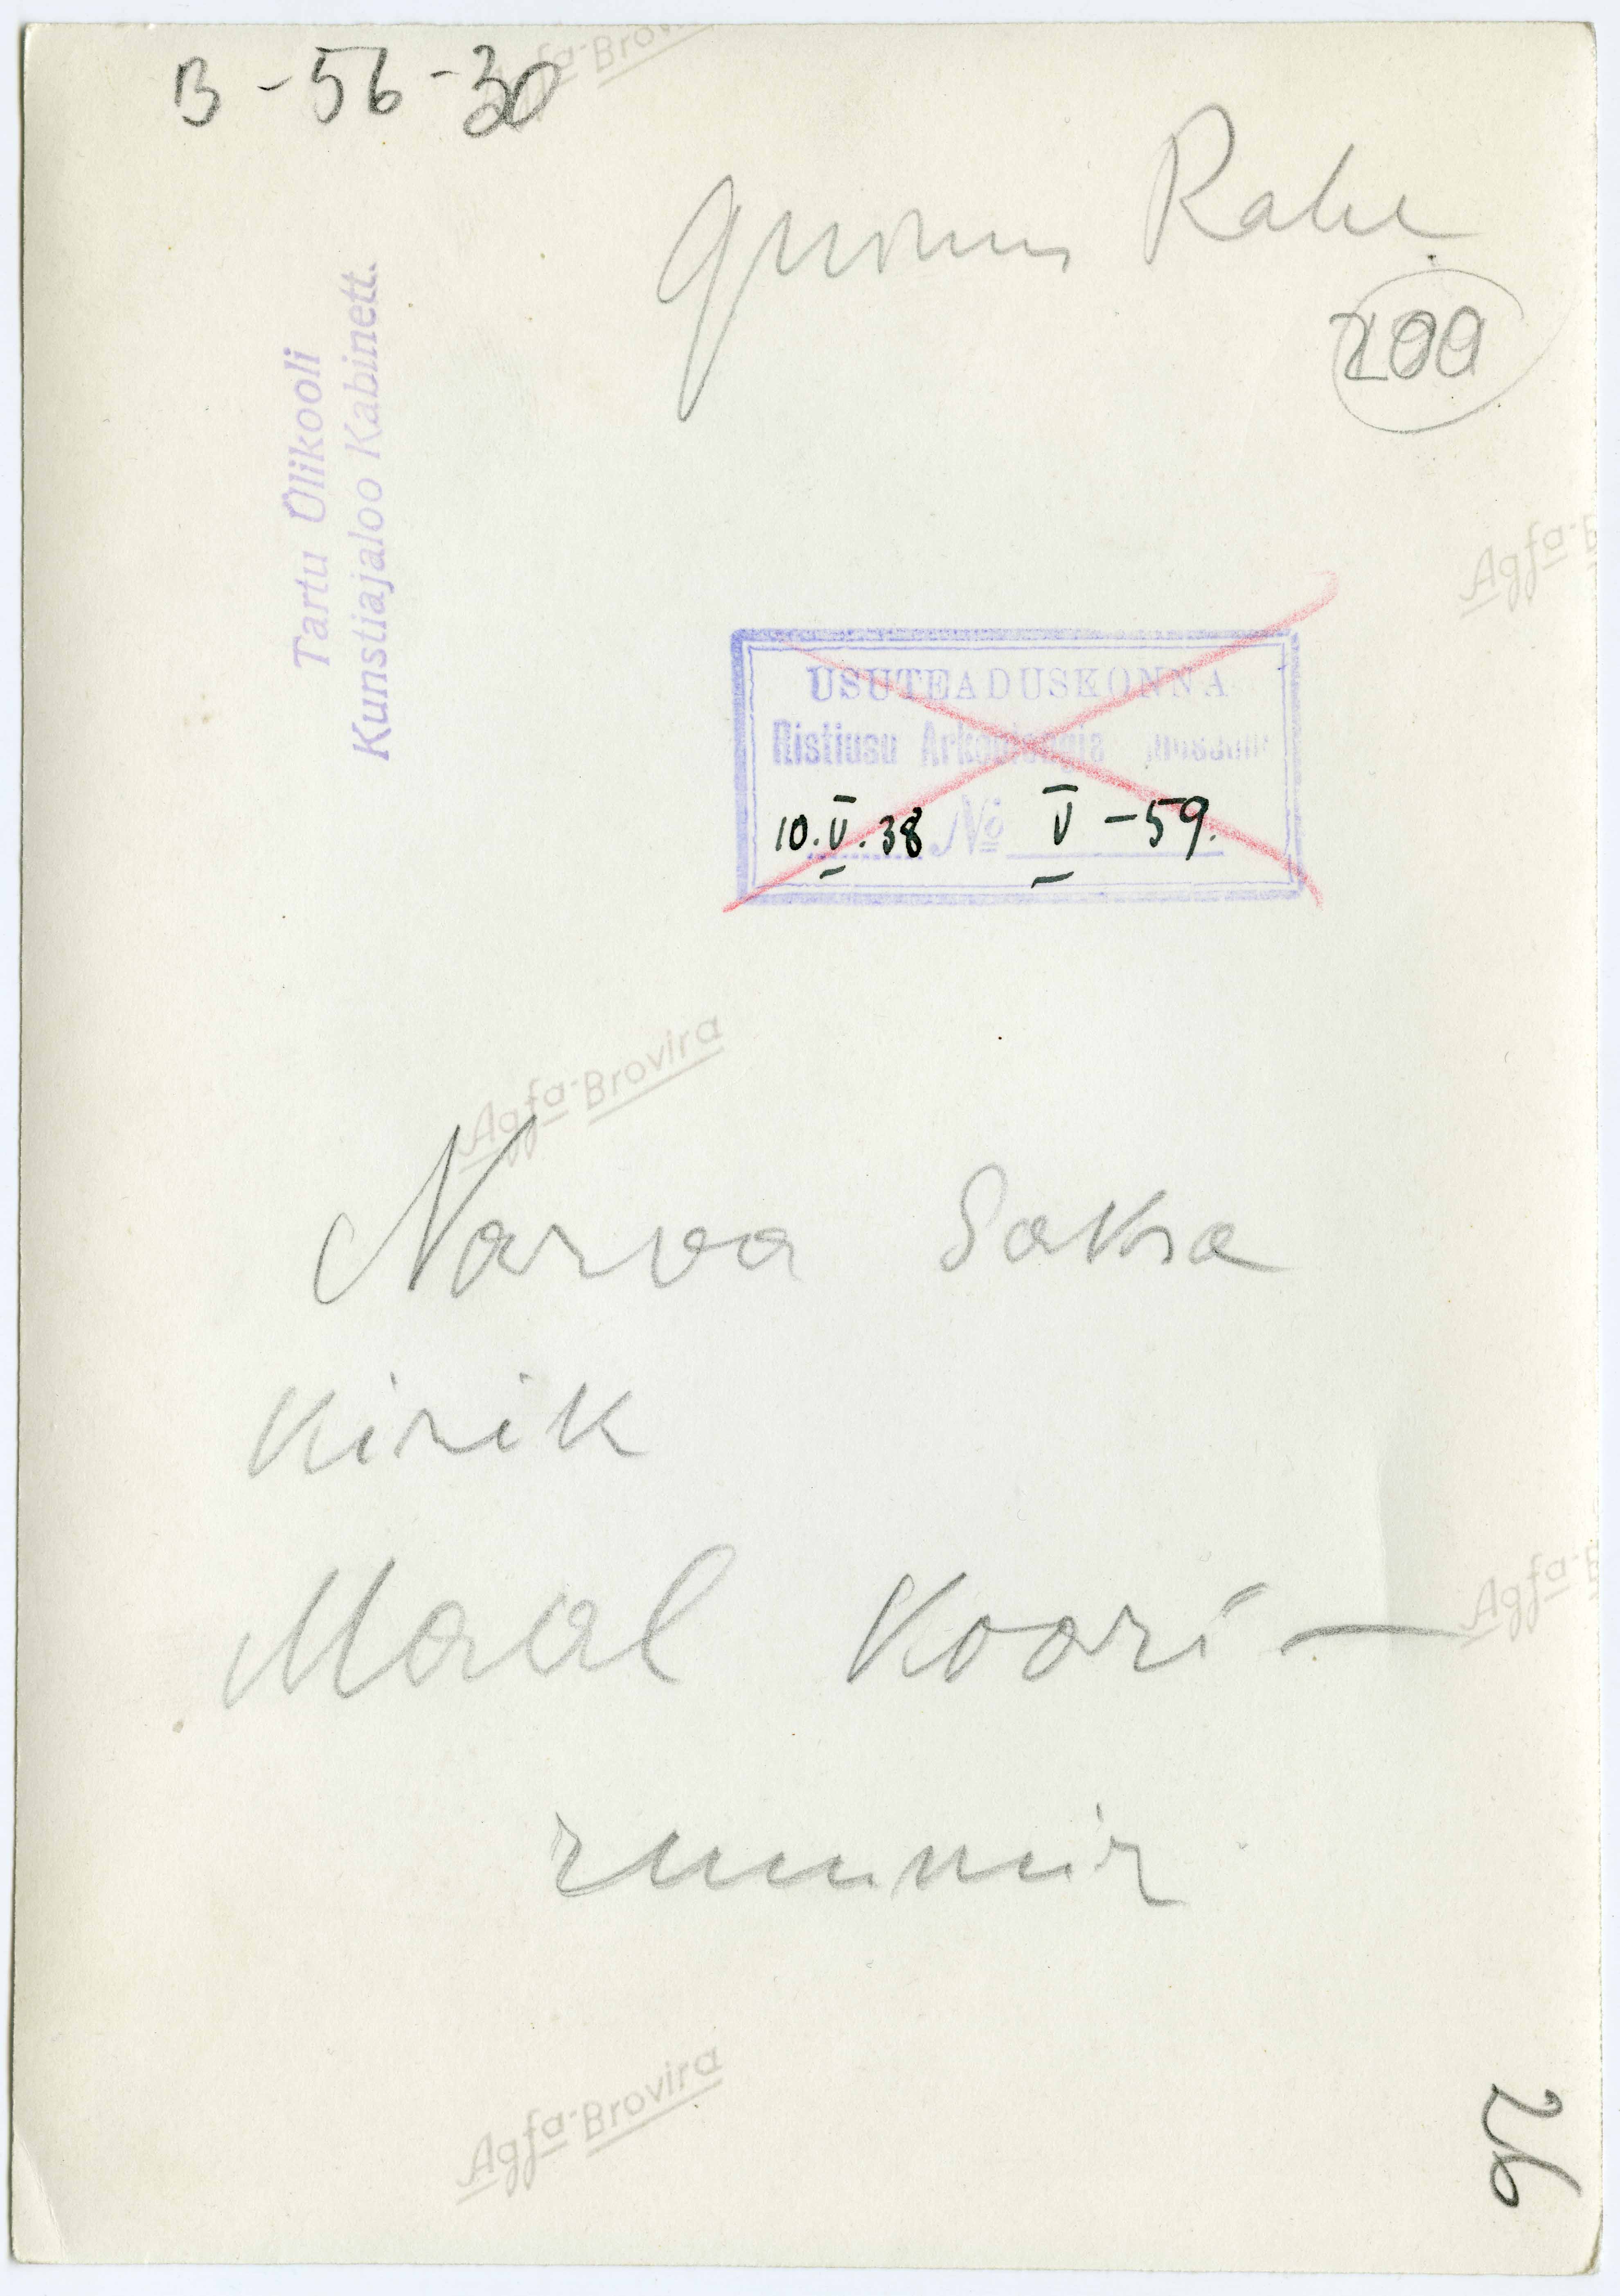 B-56-30
Rahe
200
Tartu Ülikooli
Kunstiajaloo Kabinett.
USUTEADUSKONNA
Ristiusu Arkeoloogia Muuseum
10.V.38 № V-59.
Narva Saksa
Kirik
Maal Koori-
ruumir
26
Agfa-Brovira
Agfa-B
Agfa-Brovira
Agfa-B
Agfa-Brovira